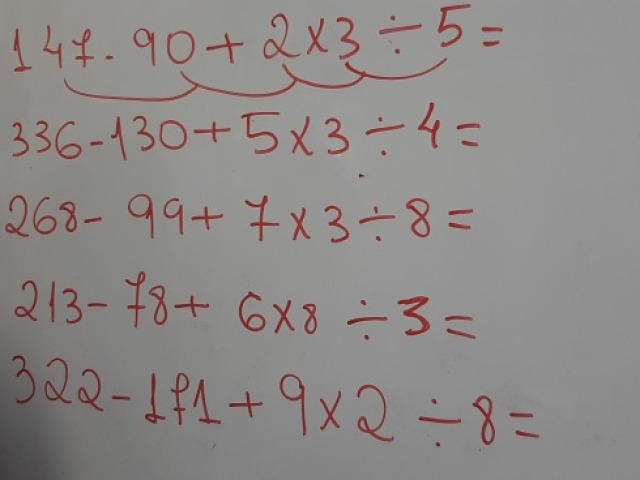 147-90+2×3÷5=
336-130+5×3÷4=
268-99+7×3÷8=
213-78+6×8÷3=
322-171+9×2÷8=